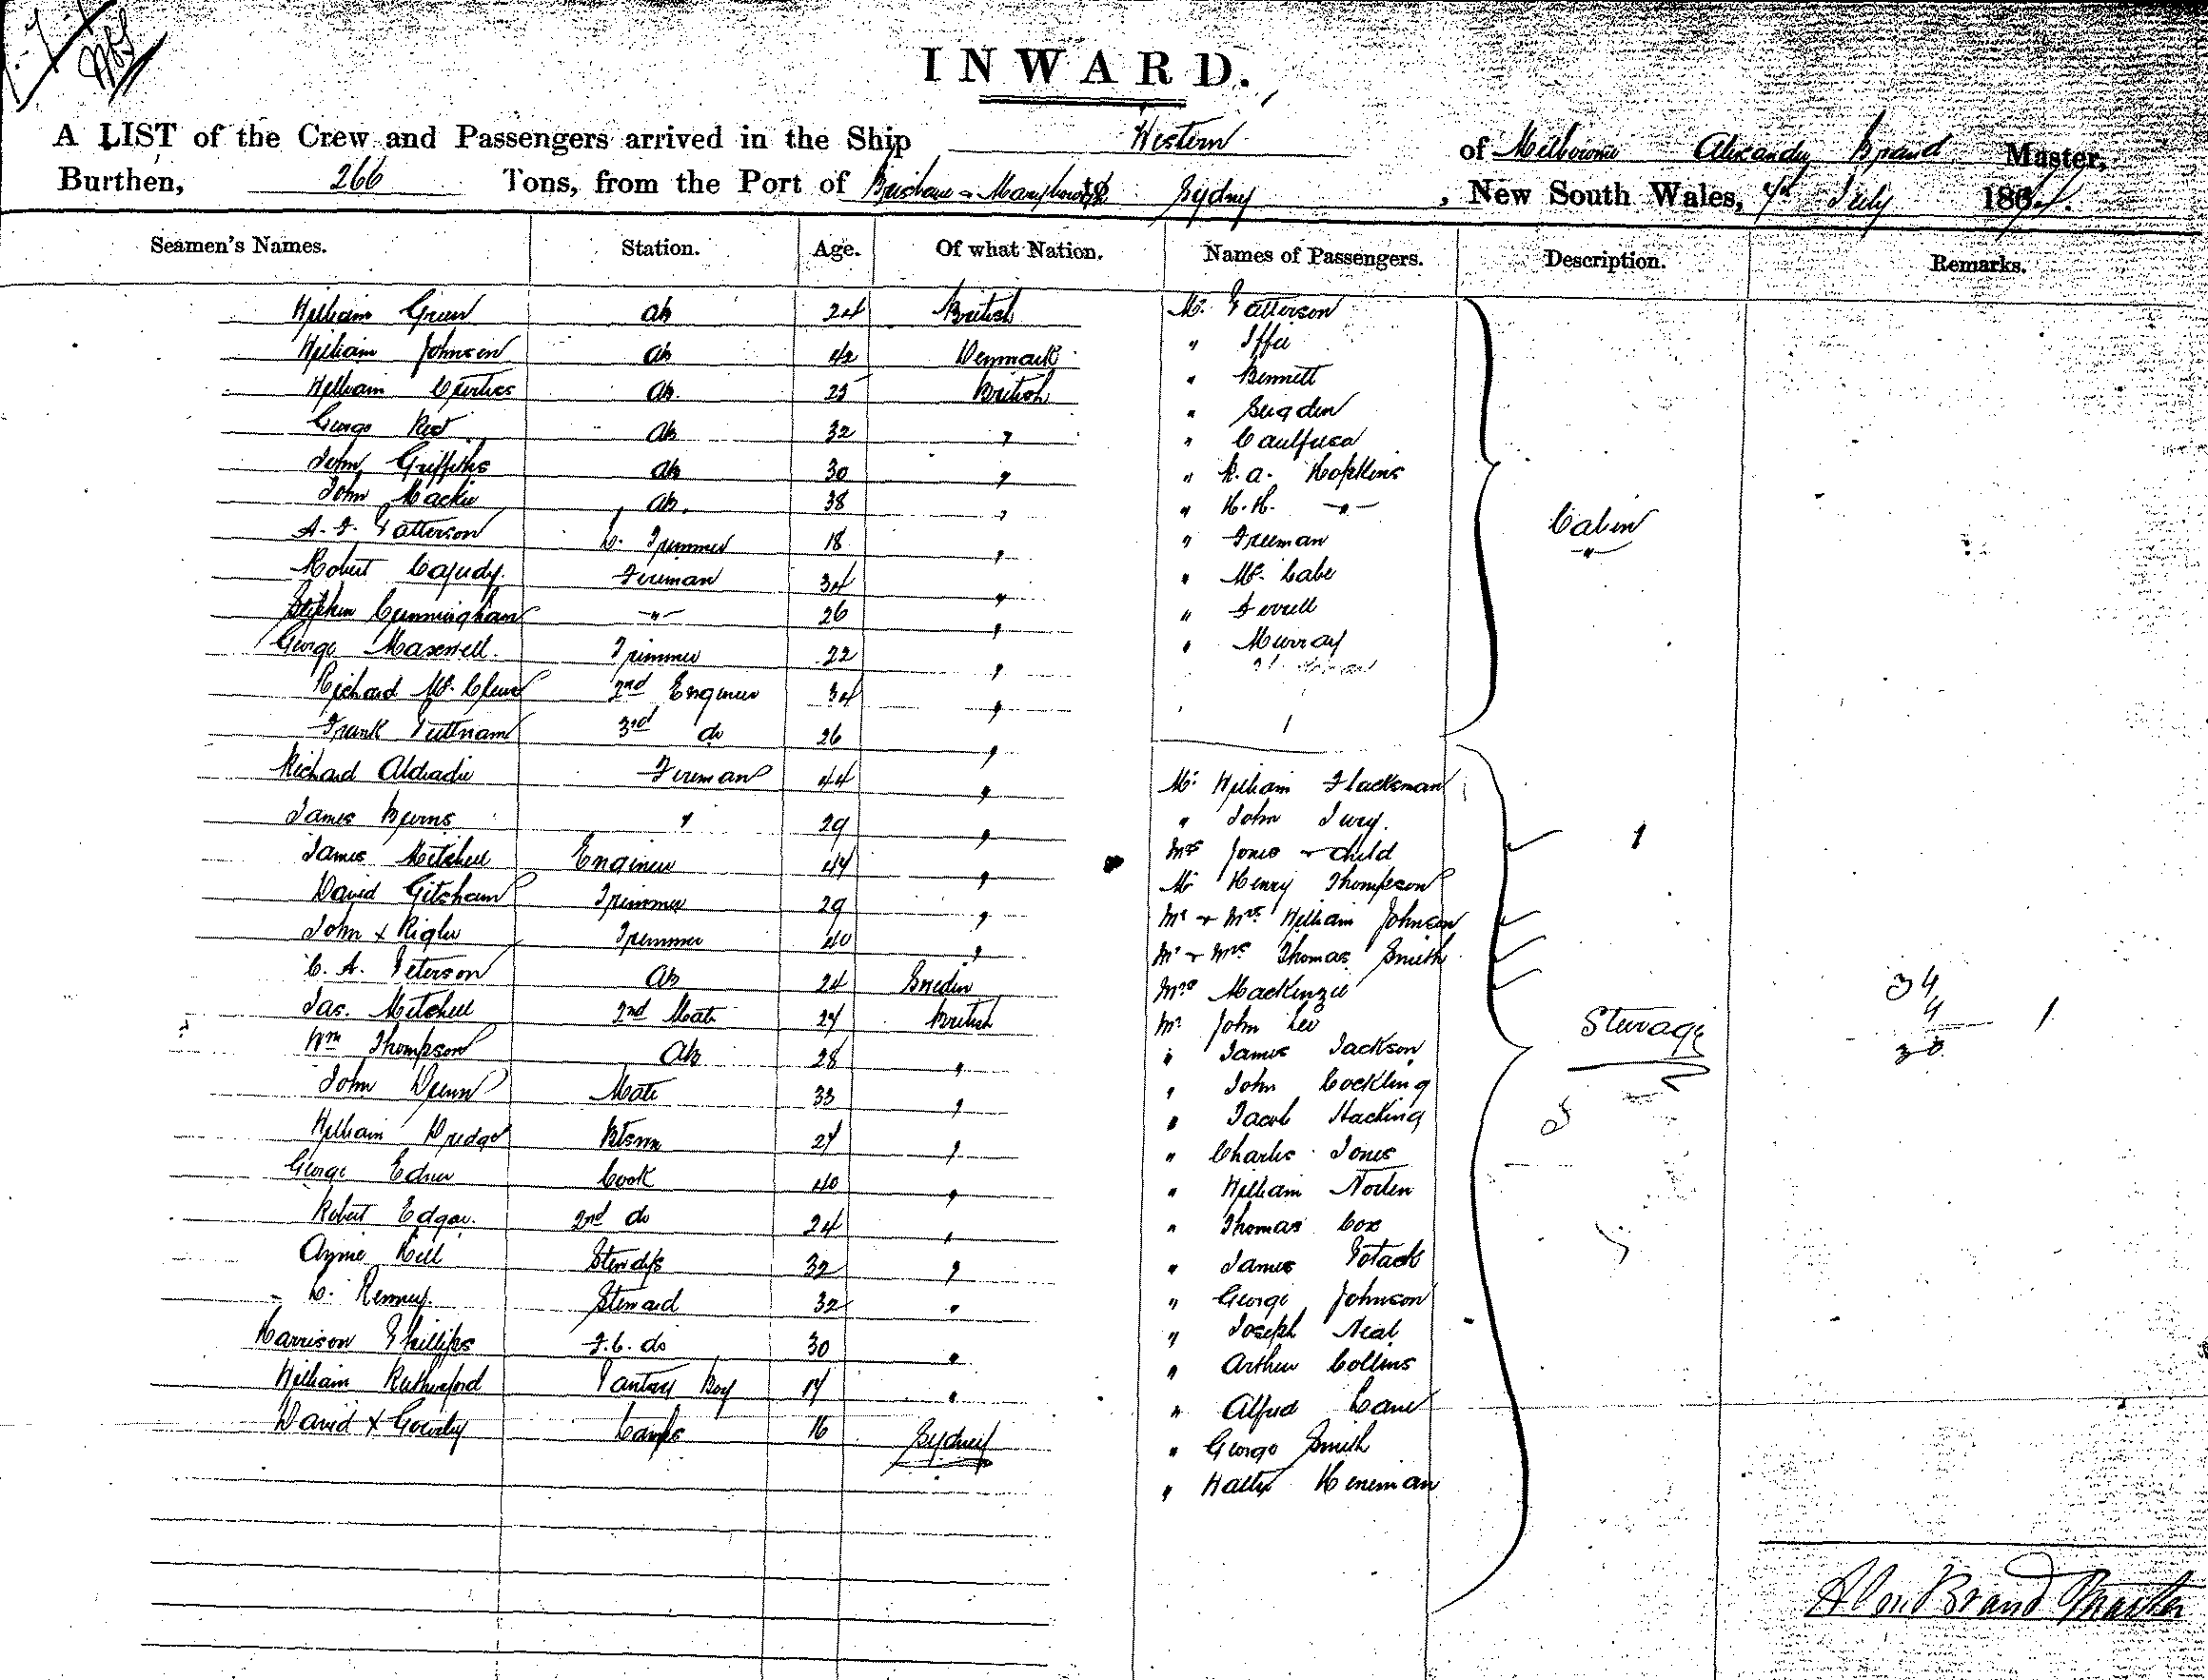 INWARD.
A LIST of the Crew and Passengers arrived in the Ship Western of Melbourne Alexander Brand Master,
Burthen, 266 Tons, from the Port of Brisbane & Maryboro to Sydney, New South Wales, 7th July 187
Seamen's Names. Station. Age. Of what Nation. Names of Passengers. Description. Remarks.
William Green ab 24 British Mr. Patterson
William Johnson ab 42 Denmark " Iffie
William Curties ab. 25 British " Bennett
George ab 32 " " Sugden
John Griffiths ab 30 " "
John Mackie ab. 38 " " R. A. Hopkins
" H. H. -"-
A. F. Patterson C. Trimmer 18 " " Freeman
Cabin
Robert Fireman 34 " " Mc. Cabe
Stephen Cunningham -"- 26 " " Ferrell
George Maxwell. Trimmer 22 " " Murray
Richard Mc. 2nd Engineer 34 "
Frank Puttnam 3rd do 26 "
Richard Fireman 44 " Mr. William Flacksman
James Burns " 29 " " John Jury.
James Mitchell Engineer 44 " Mrs Jones & Child
Mr Henry Thompson
David Gitsham Trimmer 29 " Mr & Mrs. William Johnson
John x Rigler Trimmer 40 " Mr & Mrs Thomas Smith
C. A. Peterson ab 24 Sweden Mrs Mackenzie
34
4
30
Jas. Mitchell 2nd Mate 27 British Mr. John Lee
Steerage
Wm Thompson ab 28 " " James Jackson
John Mate 33 " " John Cockling
" Jacob Hacking
William Dredge Btswn 27 " " Charles Jones
George Cook 40 " " William Norten
Robert Edgar. 2nd do 24 " " Thomas Cox
Aymie Hill Stewdss 32 " " James Potack
C. Kenney. Steward 32 " " George Johnson
Harrison Phillips F.C. do 30 " " Joseph Neal
" Arthur Collins
William Rutherford Pantry Boy 17 " " Alfred Cane
David x Gourley 16 Sydney " George Smith
" Walter Heneman
Alex Brand Master